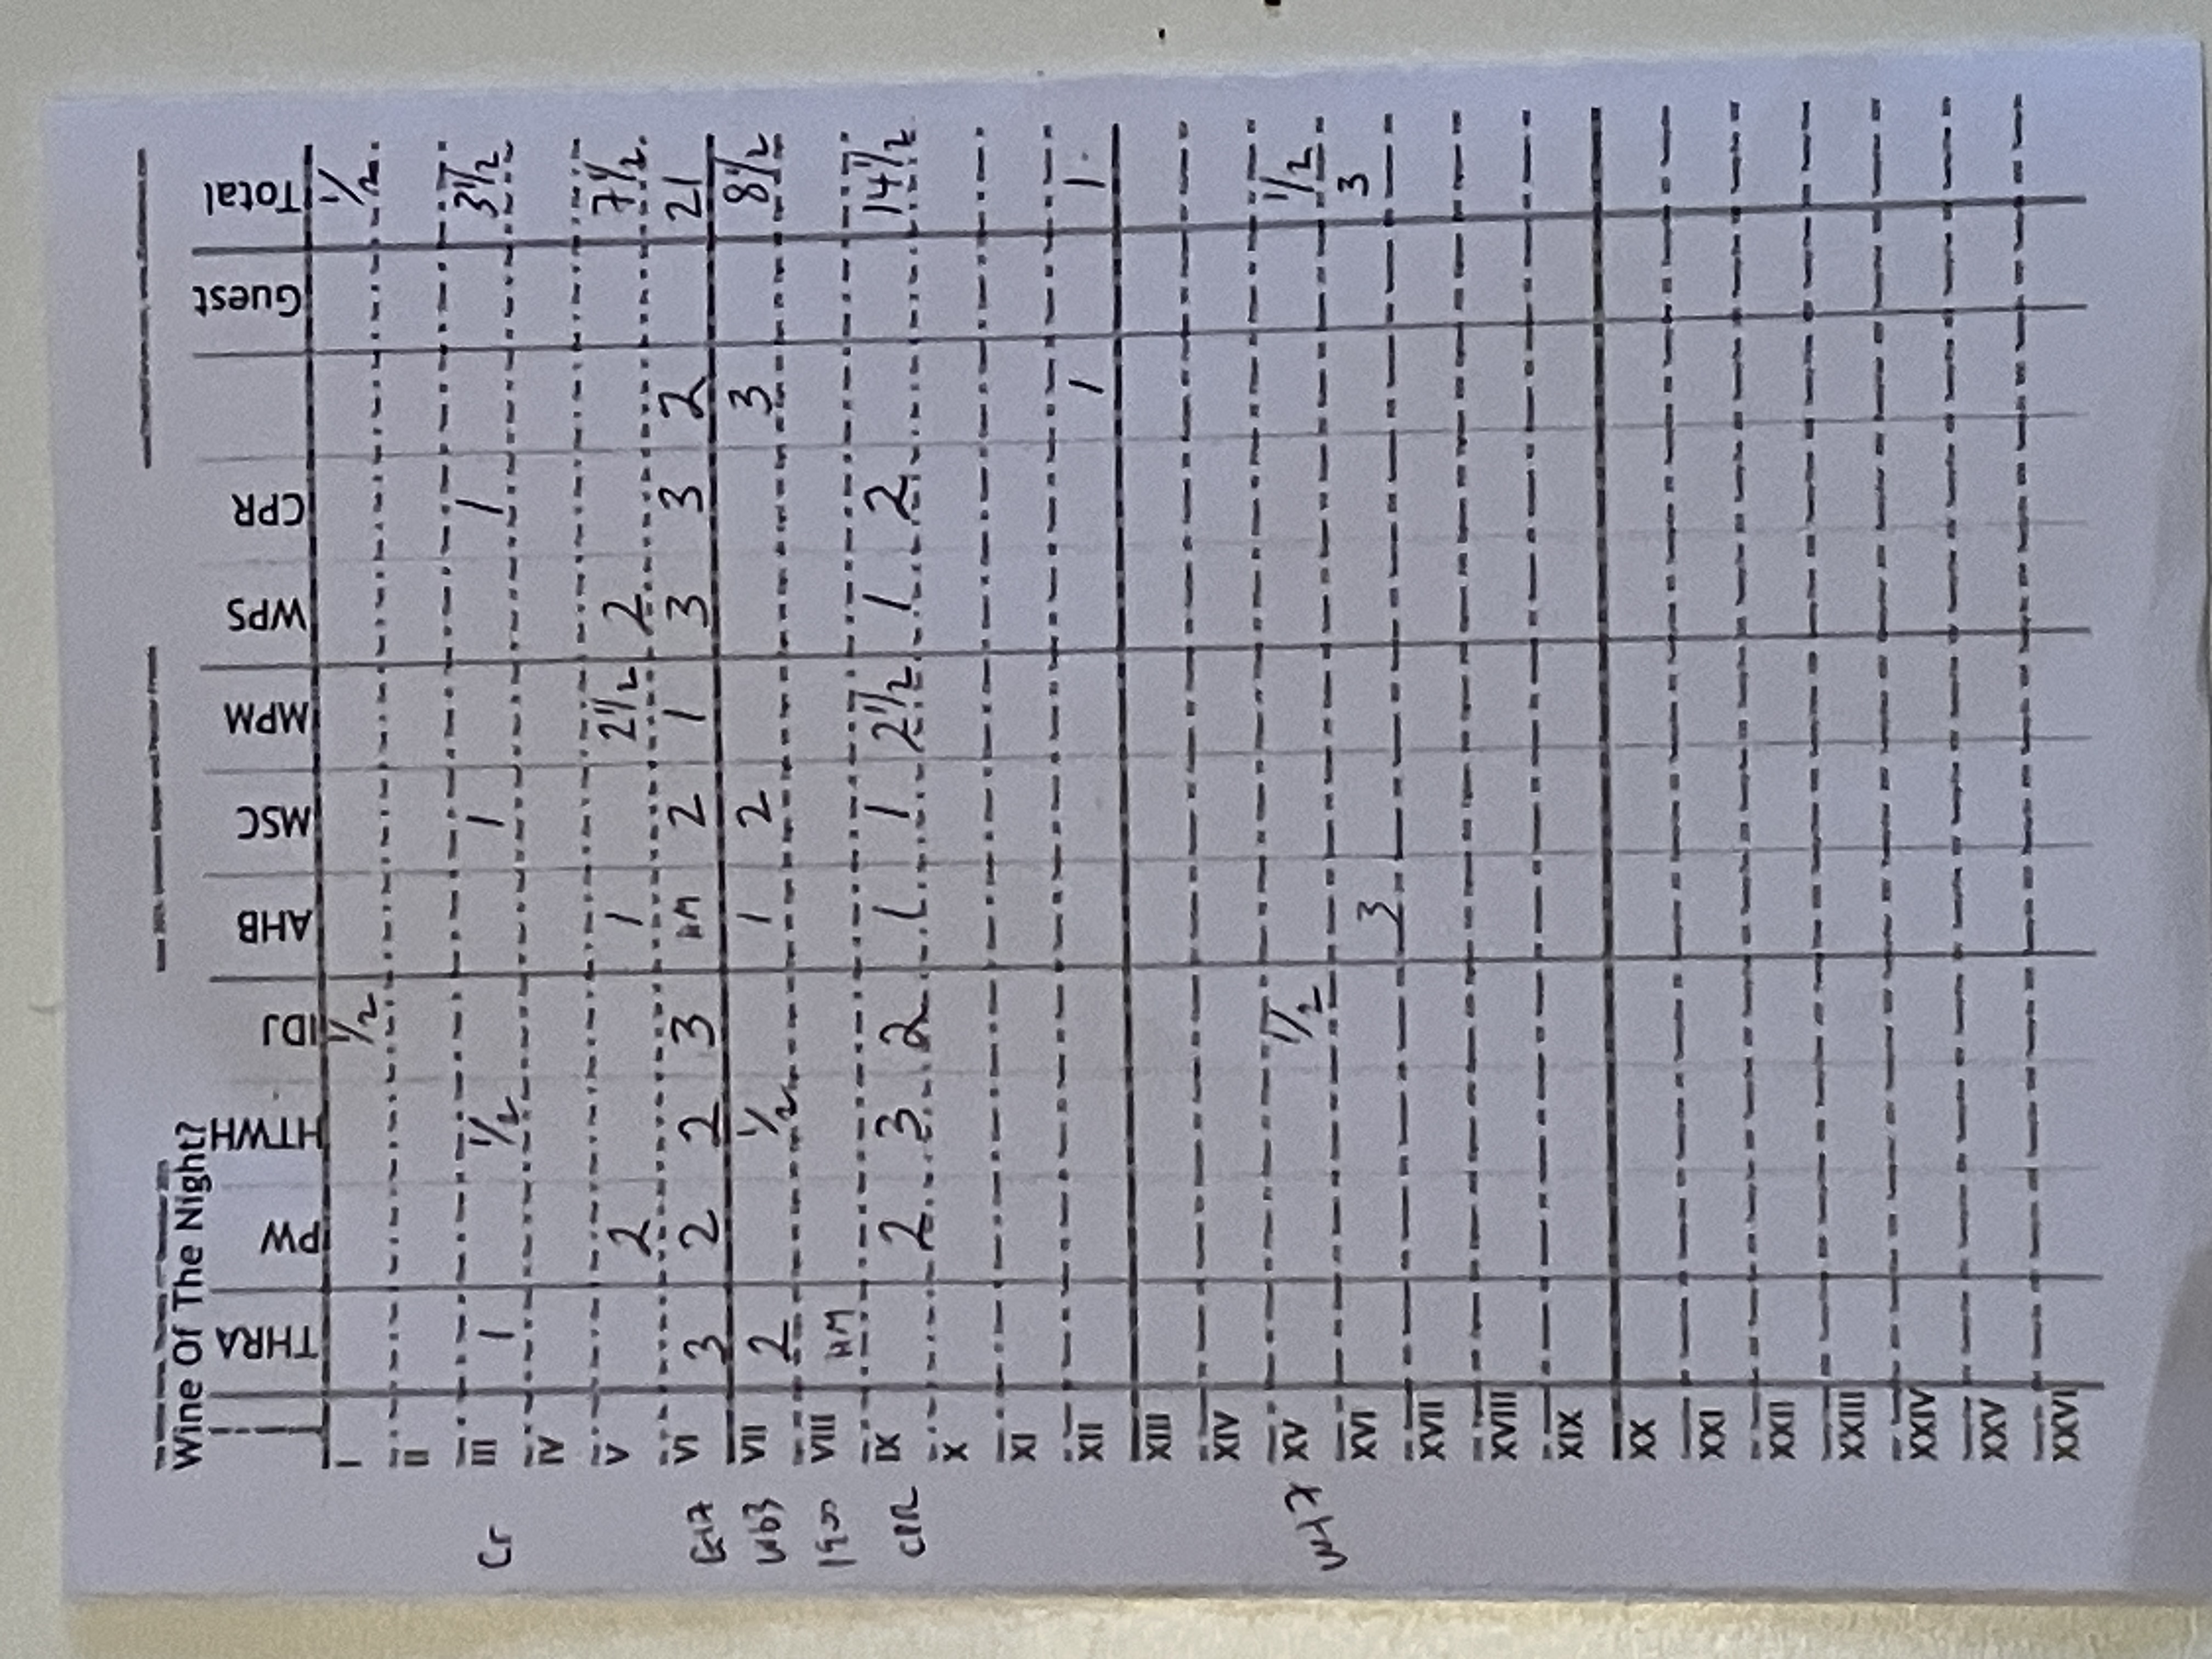 Wine Of The Night?
THRA PW HTWH IDJ AHB MSC MPM WPS CPR Guest Total
I ½ ½
II
Cr III 1 ½ 1 1 3½
IV
V 2 1 2½ 2 7½
VI 3 2 2 3 HM 2 1 3 3 2 21
VII 2 ½ 1 2 3 8½
VIII HM
CPR IX 2 3 2 1 1 2½ 1 2 14½
X
XI
XII 1 1
XIII
XIV
XV ½ ½
XVI 3 3
XVII
XVIII
XIX
XX
XXI
XXII
XXIII
XXIV
XXV
XXVI